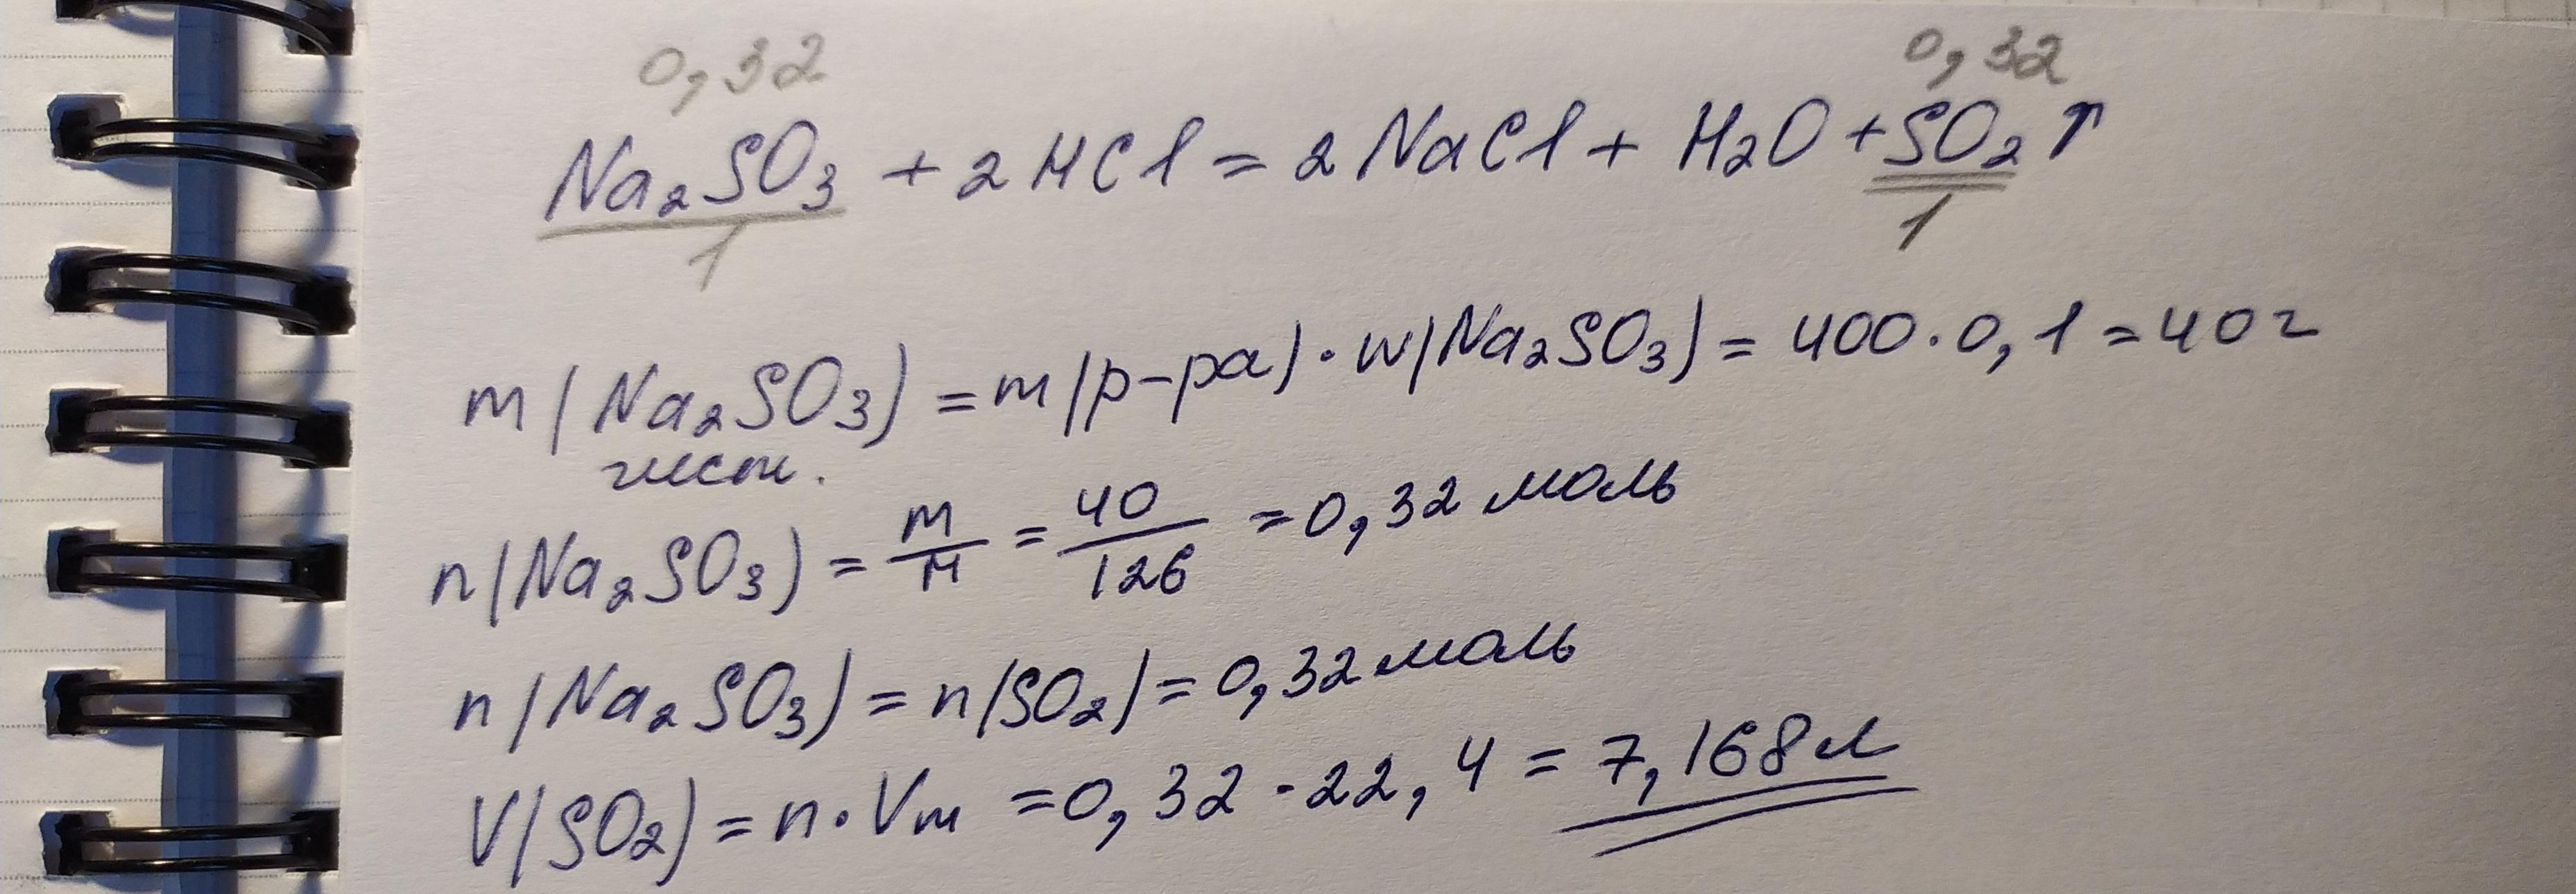 0,32 0,32
Na₂SO₃ + 2HCl = 2NaCl + H₂O + SO₂↑
1 1
m(Na₂SO₃) = m(р-ра)·w(Na₂SO₃) = 400·0,1 = 40г
чист.
n(Na₂SO₃) = m/M = 40/126 = 0,32 моль
n(Na₂SO₃) = n(SO₂) = 0,32 моль
V(SO₂) = n·Vm = 0,32·22,4 = 7,168л